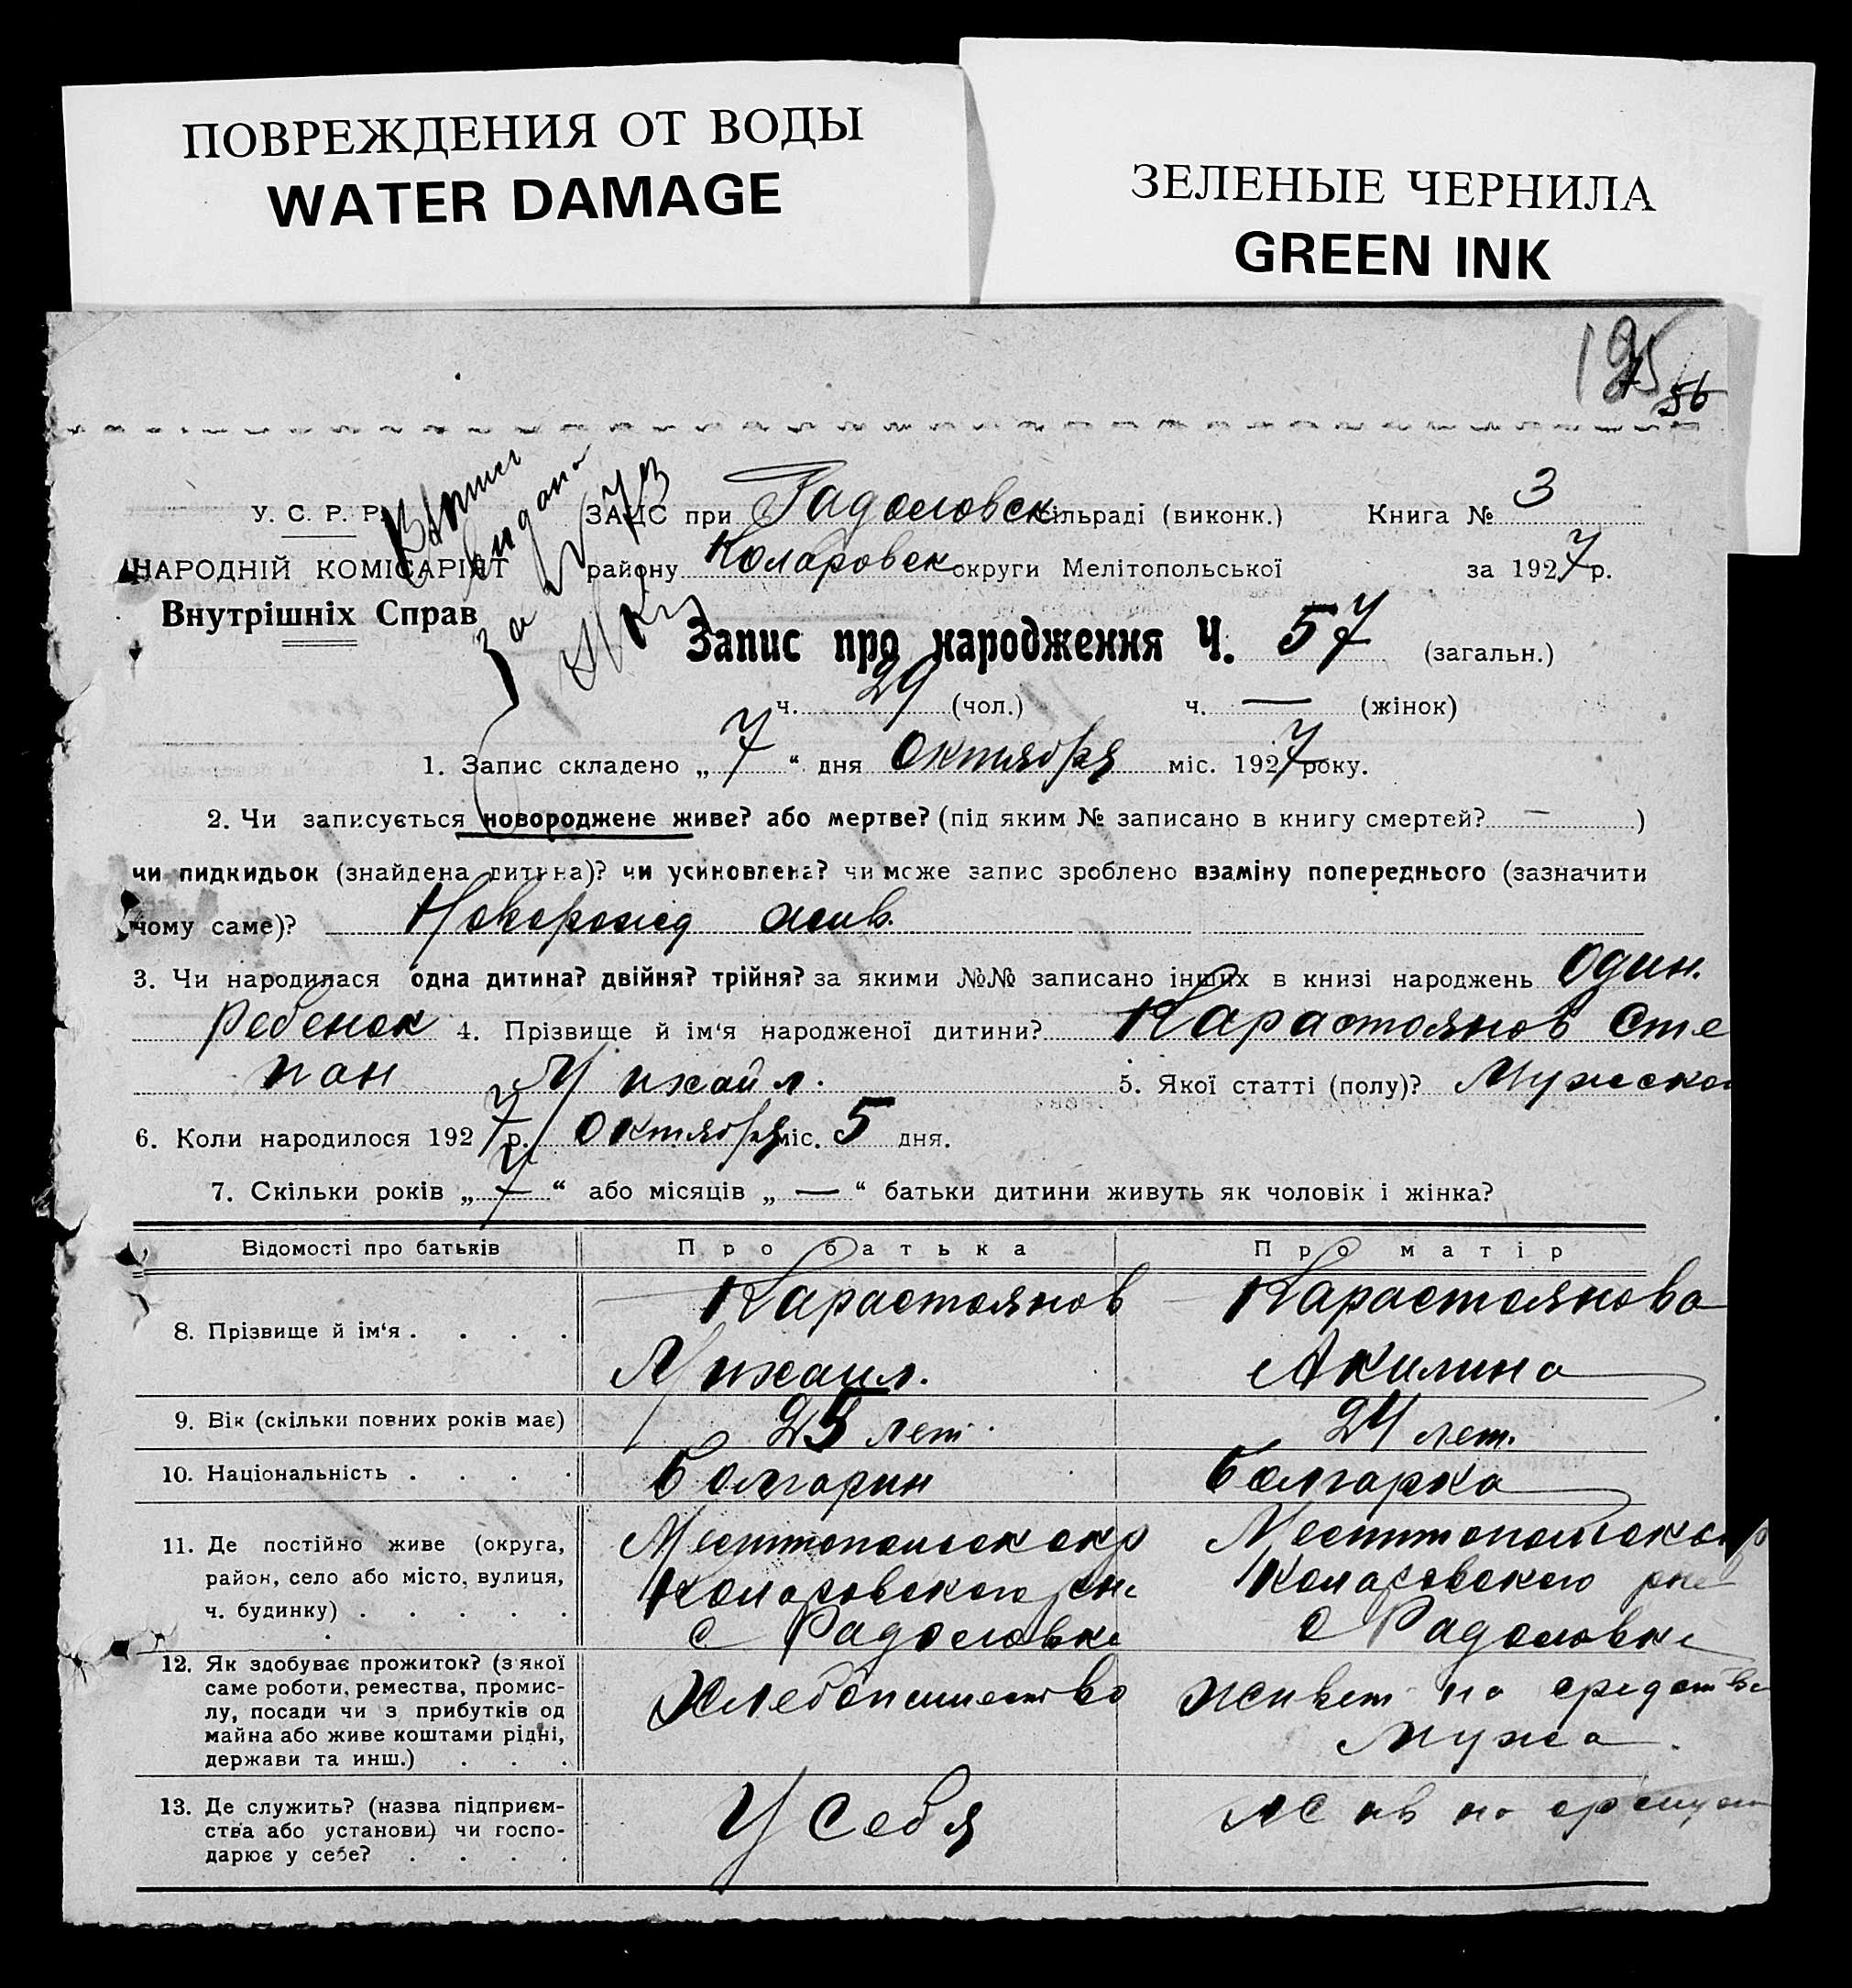 ПОВРЕЖДЕНИЯ ОТ ВОДЫ
WATER DAMAGE
ЗЕЛЕНЫЕ ЧЕРНИЛА
GREEN INK
56
У. С. Р. Р.
НАРОДНІЙ КОМІСАРІЯТ
Внутрішніх Справ
ЗАЦС при Радоловск сільраді (виконк.) Книга № 3
району Коларовск округи Мелітопольської за 1927 р.
Запис про народження Ч. 57 (загальн.)
ч. 29 (чол.) ч. — (жінок)
1. Запис складено „ 7 “ дня Октября міс. 1927 року.
2. Чи записується новороджене живе? або мертве? (під яким № записано в книгу смертей? — )
чи пидкидьок (знайдена дитина)? чи усиновлена? чи може запис зроблено взаміну попереднього (зазначити
чому саме)? Оноворожд жив.
3. Чи народилася одна дитина? двійня? трійня? за якими №№ записано інших в книзі народжень один.
ребенок 4. Прізвище й ім‘я народженої дитини? Карастоянов Сте
пан Михайл. 5. Якої статті (полу)? Мужской
6. Коли народилося 1927 р. октября міс. 5 дня.
7. Скільки років „ 7 “ або місяців „ — “ батьки дитини живуть як чоловік і жінка?
Відомості про батьків Про батька Про матір
8. Прізвище й ім‘я . . . . Карастоянов Карастоянова
Михаил. Акилина
9. Вік (скільки повних років має) 25 лет 24 лет.
10. Національність . . . . Болгарин Болгарка
11. Де постійно живе (округа,
район, село або місто, вулиця,
ч. будинку) . . . . .
Мелитопольск окр
Коларовского рне
с Радоловке
Мелитопольск окр
Коларовского рне
с Радоловке
12. Як здобуває прожиток? (з якої
саме роботи, ремества, промис-
лу, посади чи з прибутків од
майна або живе коштами рідні,
держави та инш.) . . .
Хлебопашество
живет на средства
мужа
13. Де служить? (назва підприєм-
ства або установи) чи госпо-
дарює у себе? . . . .
У себя